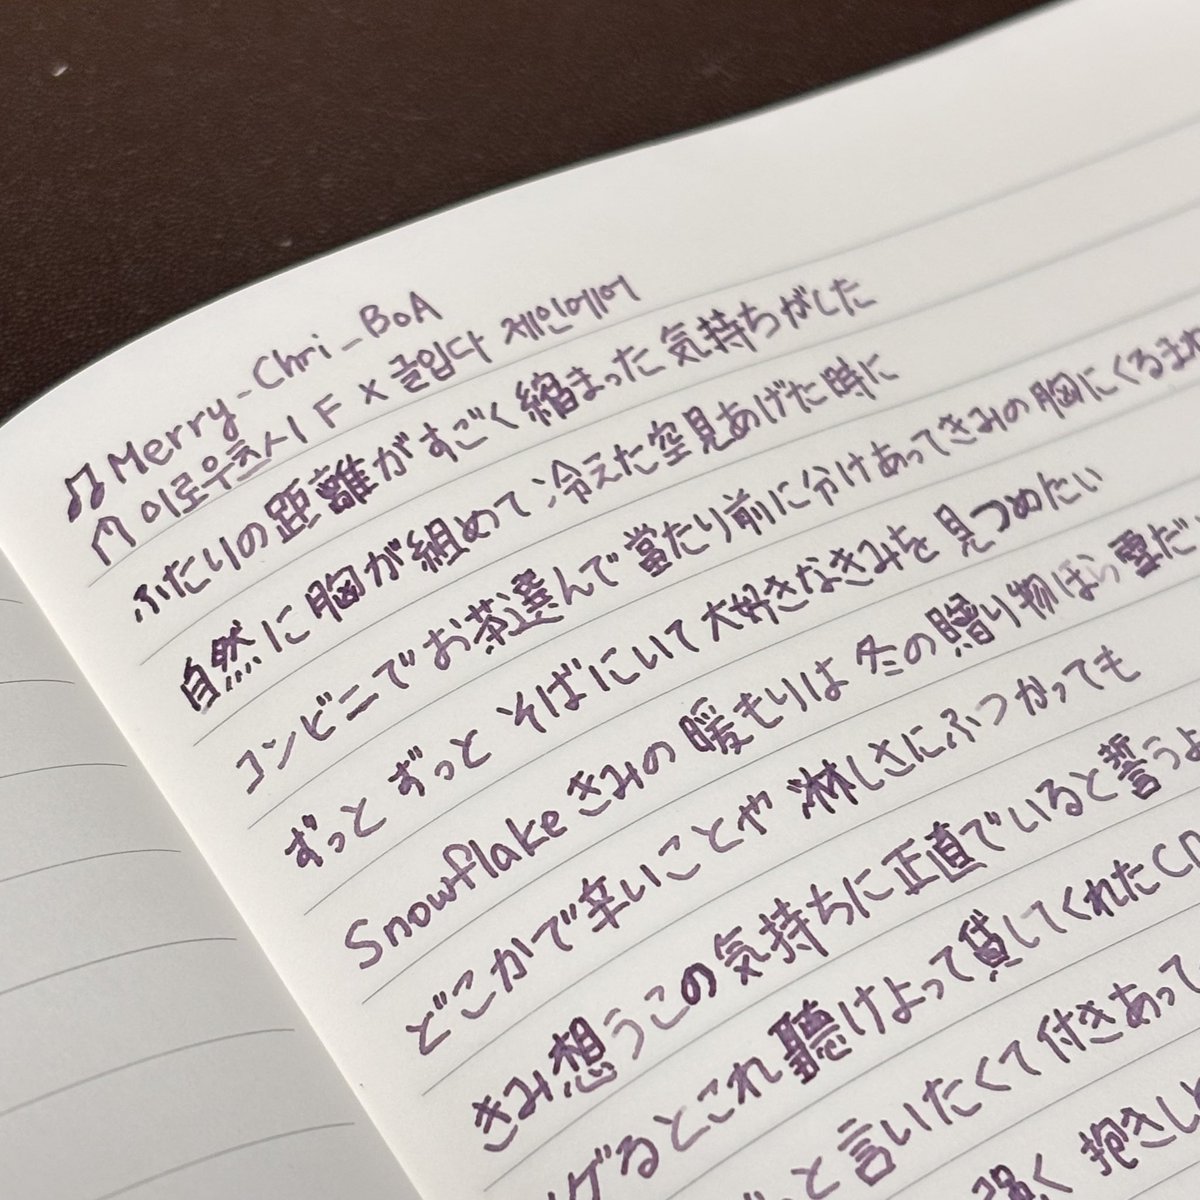 ♫ Merry-Chri_BoA
이로우츠시 F × 글입다 제인에어
ふたりの距離がすごく縮まった気持ちがした
自然に胸が組めて冷えた空見あげた時に
コンビニでお茶選んで當たり前に分けあってきみの胸にくるまれ
ずっとずっとそばにいて大好きなきみを見つめたい
Snowflakeきみの暖もりは冬の贈り物ほら雪だ
どこかで辛いことや淋しさにぶつかっても
きみ想うこの気持ちに正直でいると誓うよ
げるとこれ聴けよって貸してくれたCD
と言いたくて付きあって
強く抱きし